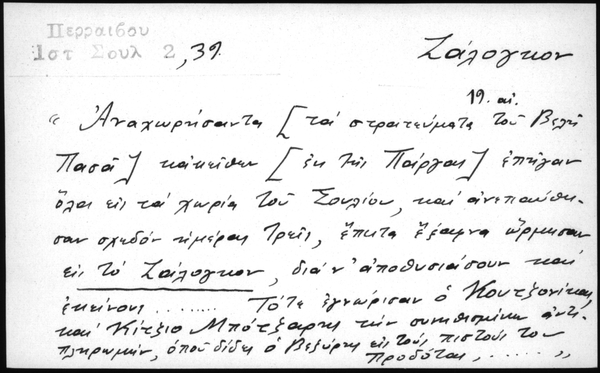 Περραιβου
Ιστ Σουλ 2, 39.
Ζάλογκον
19. αἰ.
« Ἀναχωρήσαντα [τά στρατεύματα τοῦ Βελῆ
Πασᾶ] κἀκεῖθεν [ἐκ τῆς Πάργας] ἐπῆγαν
ὅλα εἰς τά χωρία τοῦ Σουλίου, καί ἀνεπαύθη-
σαν σχεδόν ἡμέρας τρεῖς, ἔπειτα ἔξαφνα ὥρμησαν
εἰς τό Ζάλογκον, διά ν' ἀποθυσιάσουν καί
ἐκείνους ........ Τότε ἐγνώρισαν ὁ Κουτζονίκας,
καί Κίτζιο Μπότζαρης τήν συνηθισμένην ἀντι-
πληρωμήν, ὁποῦ δίδει ὁ Βεζύρης εἰς τούς πιστούς του
Προδότας, ...... »